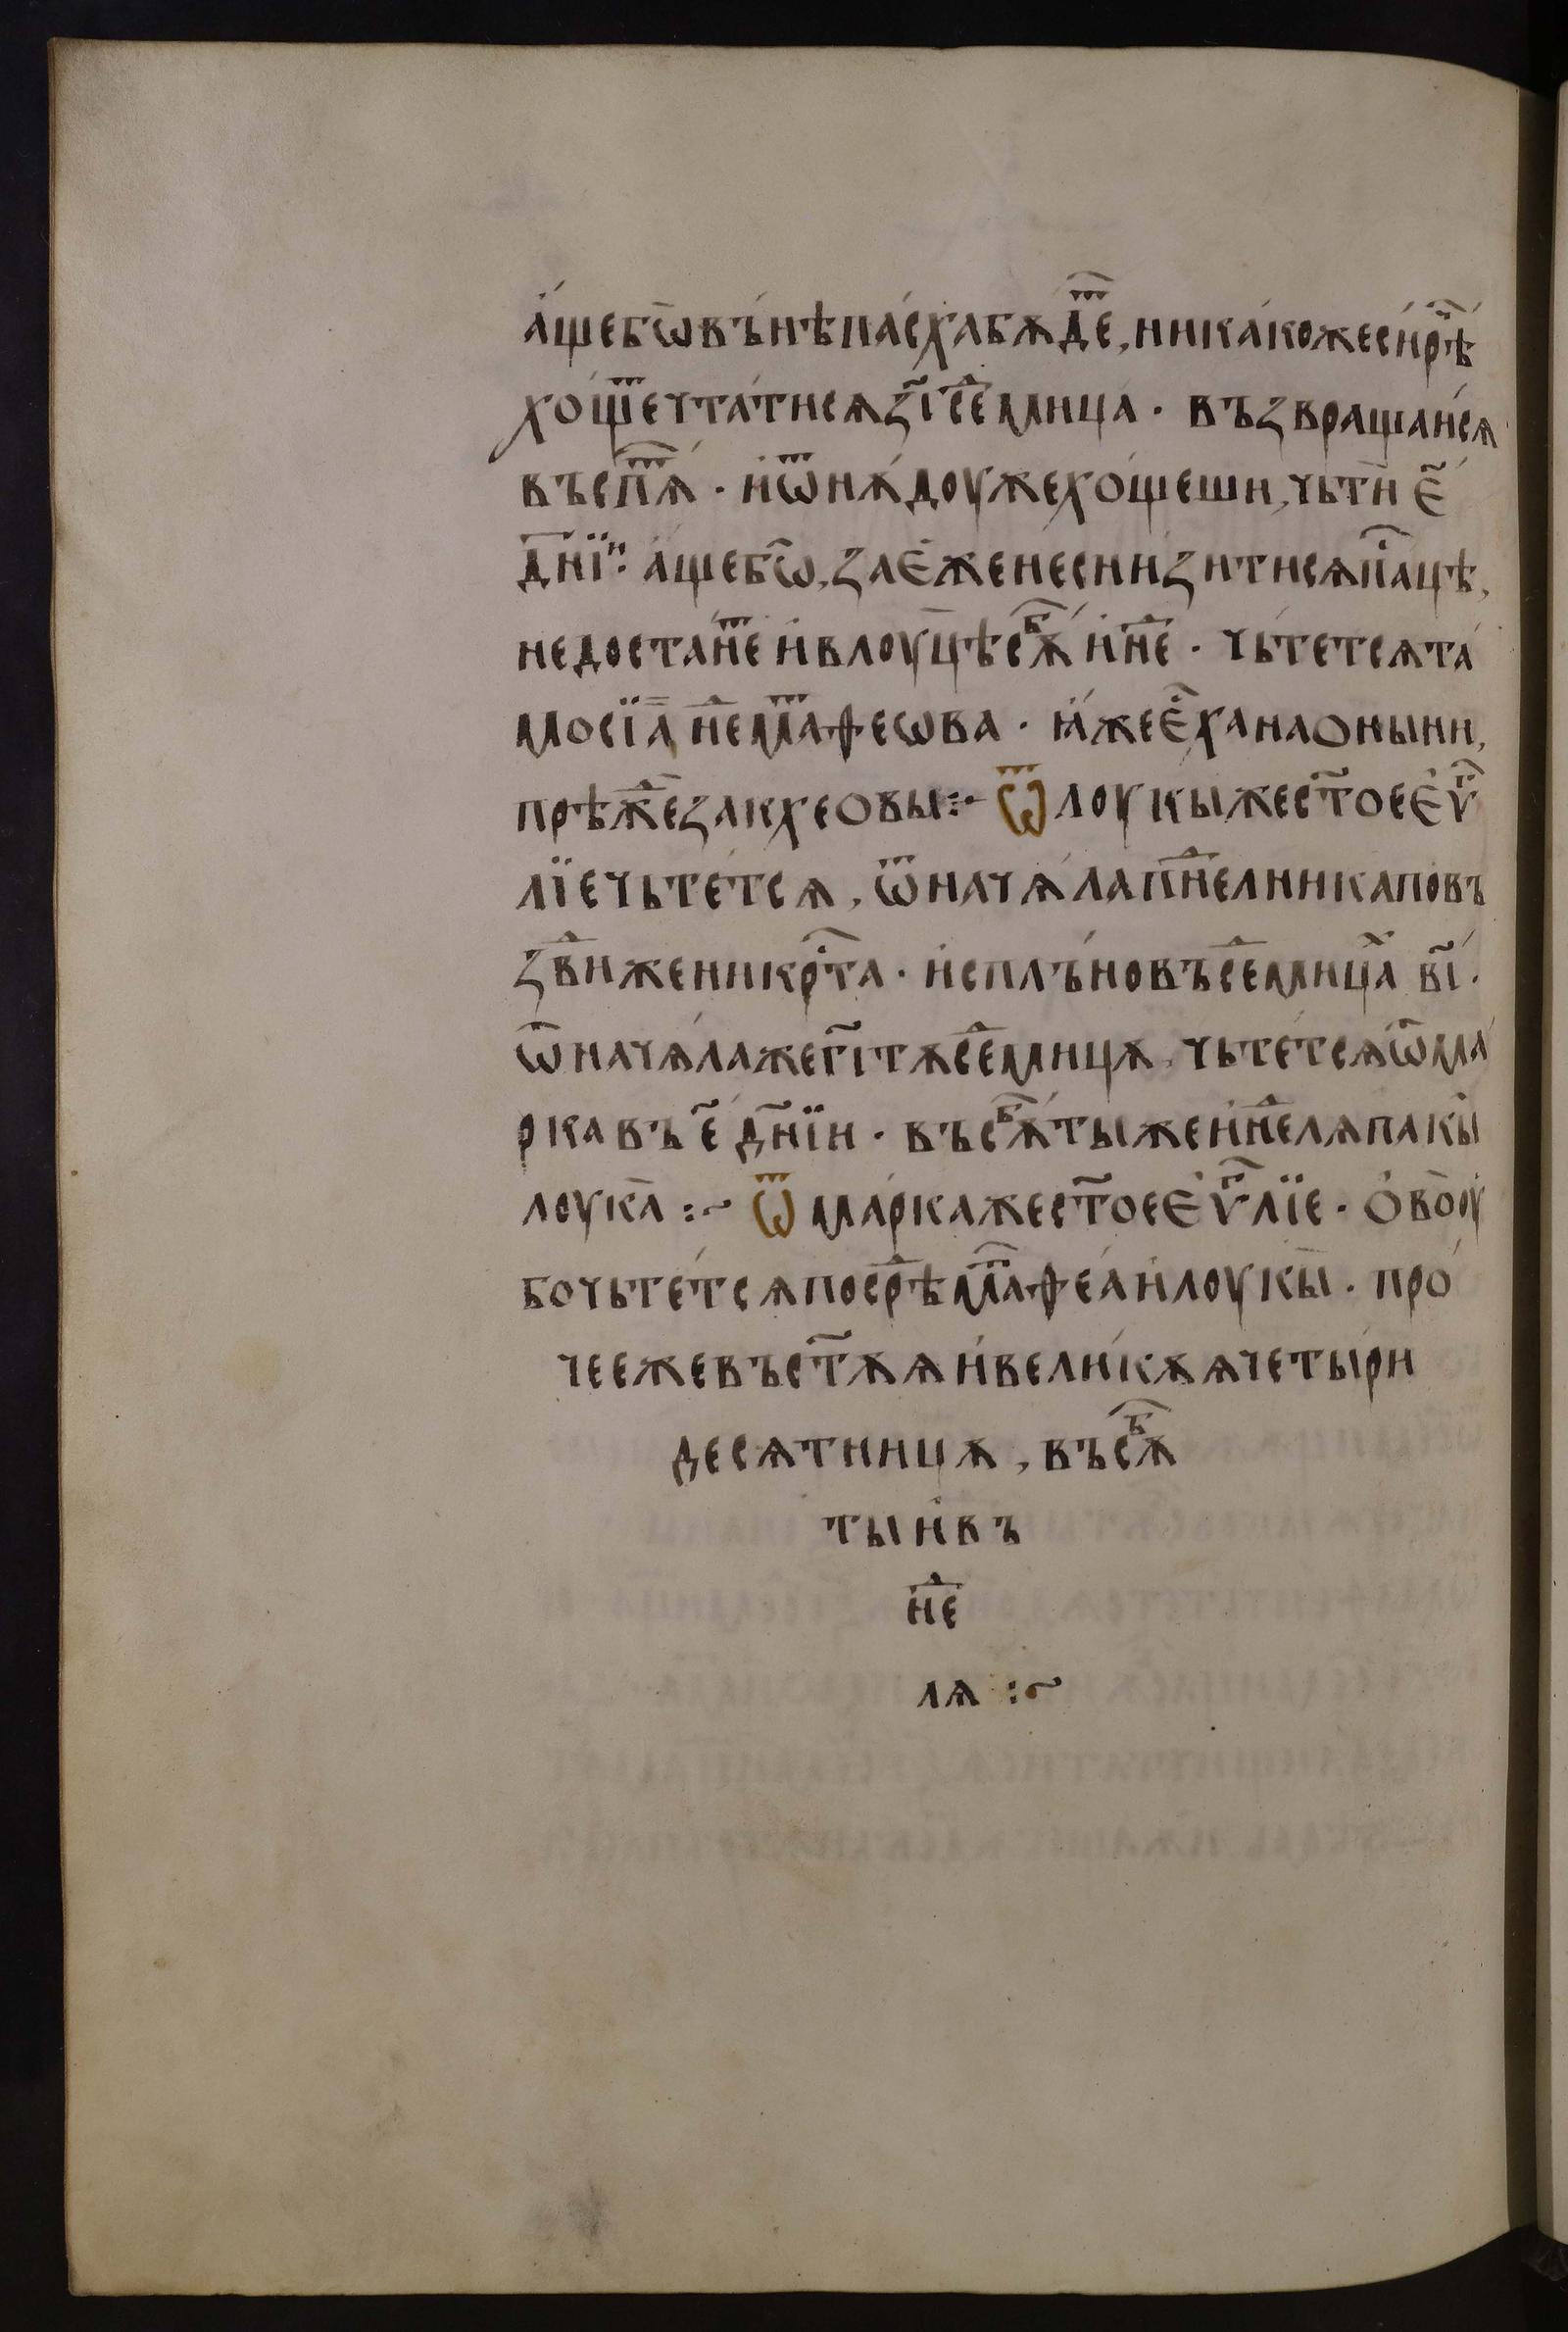 а҆́щебѡ̑въ́нѣпа́схабѫ́дⷮе, ника́кожеси́рⷱ҇ѣ́
хо́щеⷮчта́тисѧз҃і сеⷣмица . въꙁвраща́исѧ
въспѧⷮ́ . и҆ѿнѫ́доуже хо́щеши, чьти̏ е҃
дн҃їиⷯ. а҆́щебѡ̑, ꙁає҆́женесни́ꙁитисѧпⷭ҇а́цѣ,
недоста́неⷮ и҆влоуц̏ѣ сѫⷠ́ и҆неⷣ . чьте́тсѧта́
мосїа̏ неⷣ маⷮѳеѡва . ꙗ҆́жеє҆сⷭ҇ханаѻныни,
прѣжеⷣꙁакхеѻвы :~ Ѿ лоукы́жест҃оеє҆ѵⷢ
лїечьте́тсѧ, ѿнача́лапнеⷣлникаповъ
ꙁвиⷣженикрⷭ҇та . и҆сплъ́новъсеⷣмица̏ в҃і .
ѿнача́лажег҃ітѫсеⷣмицѫ, чьте́тсѧѿма́
ркавъ е҃ дн҃їи . въсѫⷠ́тыжеи҆неⷣлѧпакы̏
лоука̏ :~ Ѿ ма́ркажест҃оеє҆ѵⷢлїе . ѻ҆во̏у
бочьте́тсѧпосрⷣѣ маⷮѳеа́и҆лоукы̏ . про́
чеежевъст҃ѫѧи҆вели́кѫѧчеты́ри
десѧтницѫ, въсѫⷠ
тыи҆въ
неⷣ
лѧ :~